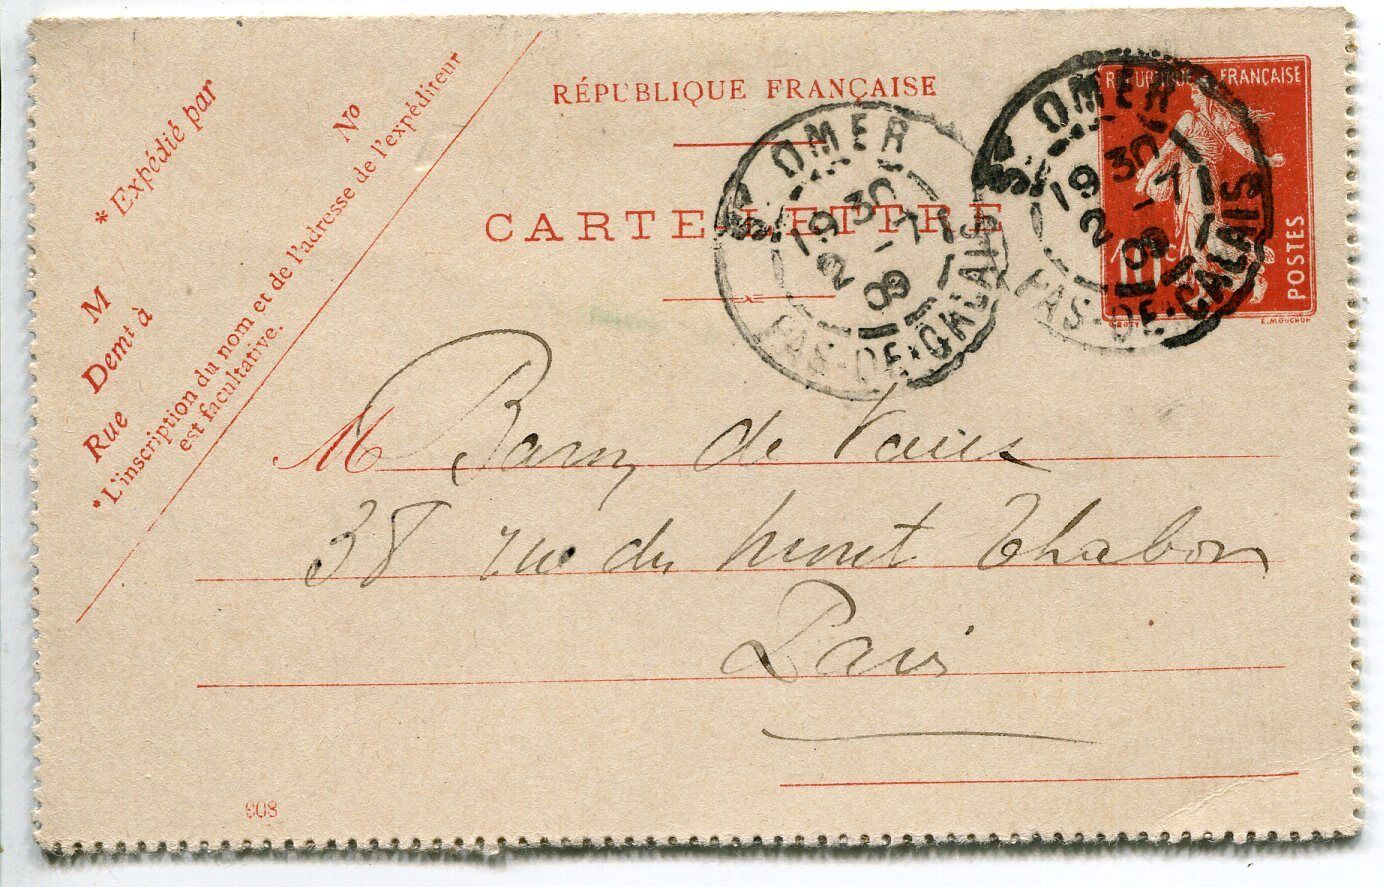 * Expédié par
M
No
Demt à
Rue
* L'inscription du nom et de l'adresse de l'expéditeur
est facultative.
RÉPUBLIQUE FRANÇAISE
CARTE-LETTRE
RÉPUBLIQUE FRANÇAISE
10 c
POSTES
E. MOUCHON
St OMER
19 30
2 - 7
09
PAS-DE-CALAIS
St OMER
19 30
2 - 7
09
PAS-DE-CALAIS
M de
38 rue du mont Thabor
Paris
808